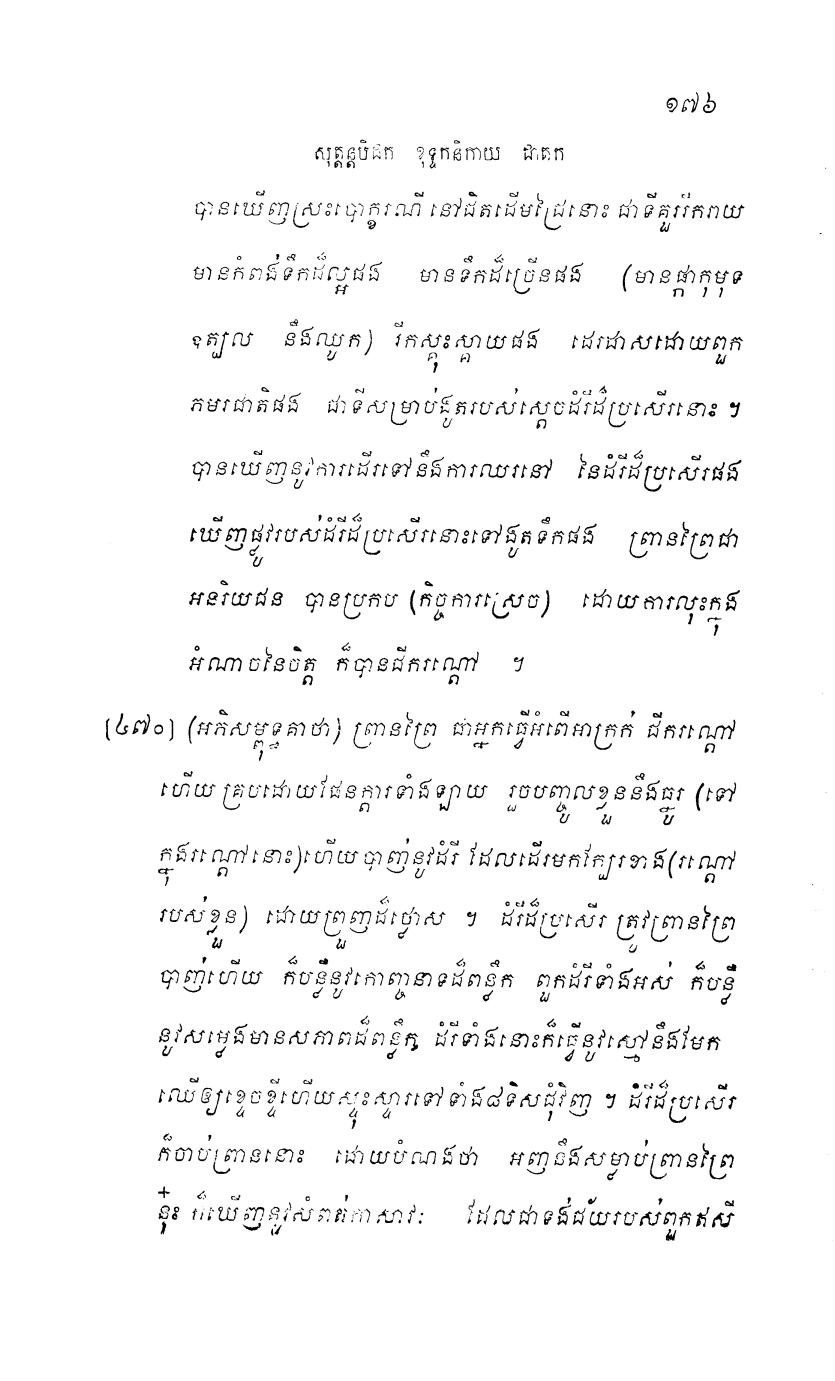 ១៧៦
សុត្តន្តបិដក ខុទ្ទកនិកាយ ជាតក
បានឃើញស្រះបោក្ខរណី នៅជិតដើមជ្រៃនោះ ជាទីគួររីករាយ
មានកំពង់ទឹកដ៏ល្អផង មានទឹកដ៏ច្រើនផង (មានផ្កាកុមុទ
ឧត្បល នឹងឈូក) រីកស្គុះស្គាយផង ដេរដាសដោយពួក
ភមរជាតិផង ជាទីសម្រាប់ងូតរបស់ស្តេចដំរីដ៏ប្រសើរនោះ ។
បានឃើញនូវការដើរទៅនឹងការឈរនៅ នៃដំរីដ៏ប្រសើរផង
ឃើញផ្លូវរបស់ដំរីដ៏ប្រសើរនោះទៅងូតទឹកផង ព្រានព្រៃជា
អនរិយជន បានប្រកប (កិច្ចការស្រេច) ដោយការលុះក្នុង
អំណាចនៃចិត្ត ក៏បានជីករណ្តៅ ។
[៤៧០] (អភិសម្ពុទ្ធគាថា) ព្រានព្រៃ ជាអ្នកធ្វើអំពើអាក្រក់ ជីករណ្តៅ
ហើយ គ្របដោយផែនក្តារទាំងឡាយ រួចបញ្ចូលខ្លួននឹងធ្នូ (ទៅ
ក្នុងរណ្តៅនោះ)ហើយ បាញ់នូវដំរី ដែលដើរមកក្បែរខាង(រណ្តៅ
របស់ខ្លួន) ដោយព្រួញដ៏ថ្លោស ។ ដំរីដ៏ប្រសើរ ត្រូវព្រានព្រៃ
បាញ់ហើយ ក៏បន្លឺនូវកោញ្ចនាទដ៏ពន្លឹក ពួកដំរីទាំងអស់ ក៏បន្លឺ
នូវសម្លេងមានសភាពដ៏ពន្លឹក ដំរីទាំងនោះក៏ធ្វើនូវស្មៅនឹងមែក
ឈើឲ្យខ្ទេចខ្ទីហើយស្ទុះស្ទារទៅទាំង៨ទិសជុំវិញ ។ ដំរីដ៏ប្រសើរ
ក៏ចាប់ព្រាននោះ ដោយបំណងថា អញនឹងសម្លាប់ព្រានព្រៃ
នុ៎ះ ក៏ឃើញនូវសំពត់កាសាវៈ ដែលជាទង់ជ័យរបស់ពួកឥសី